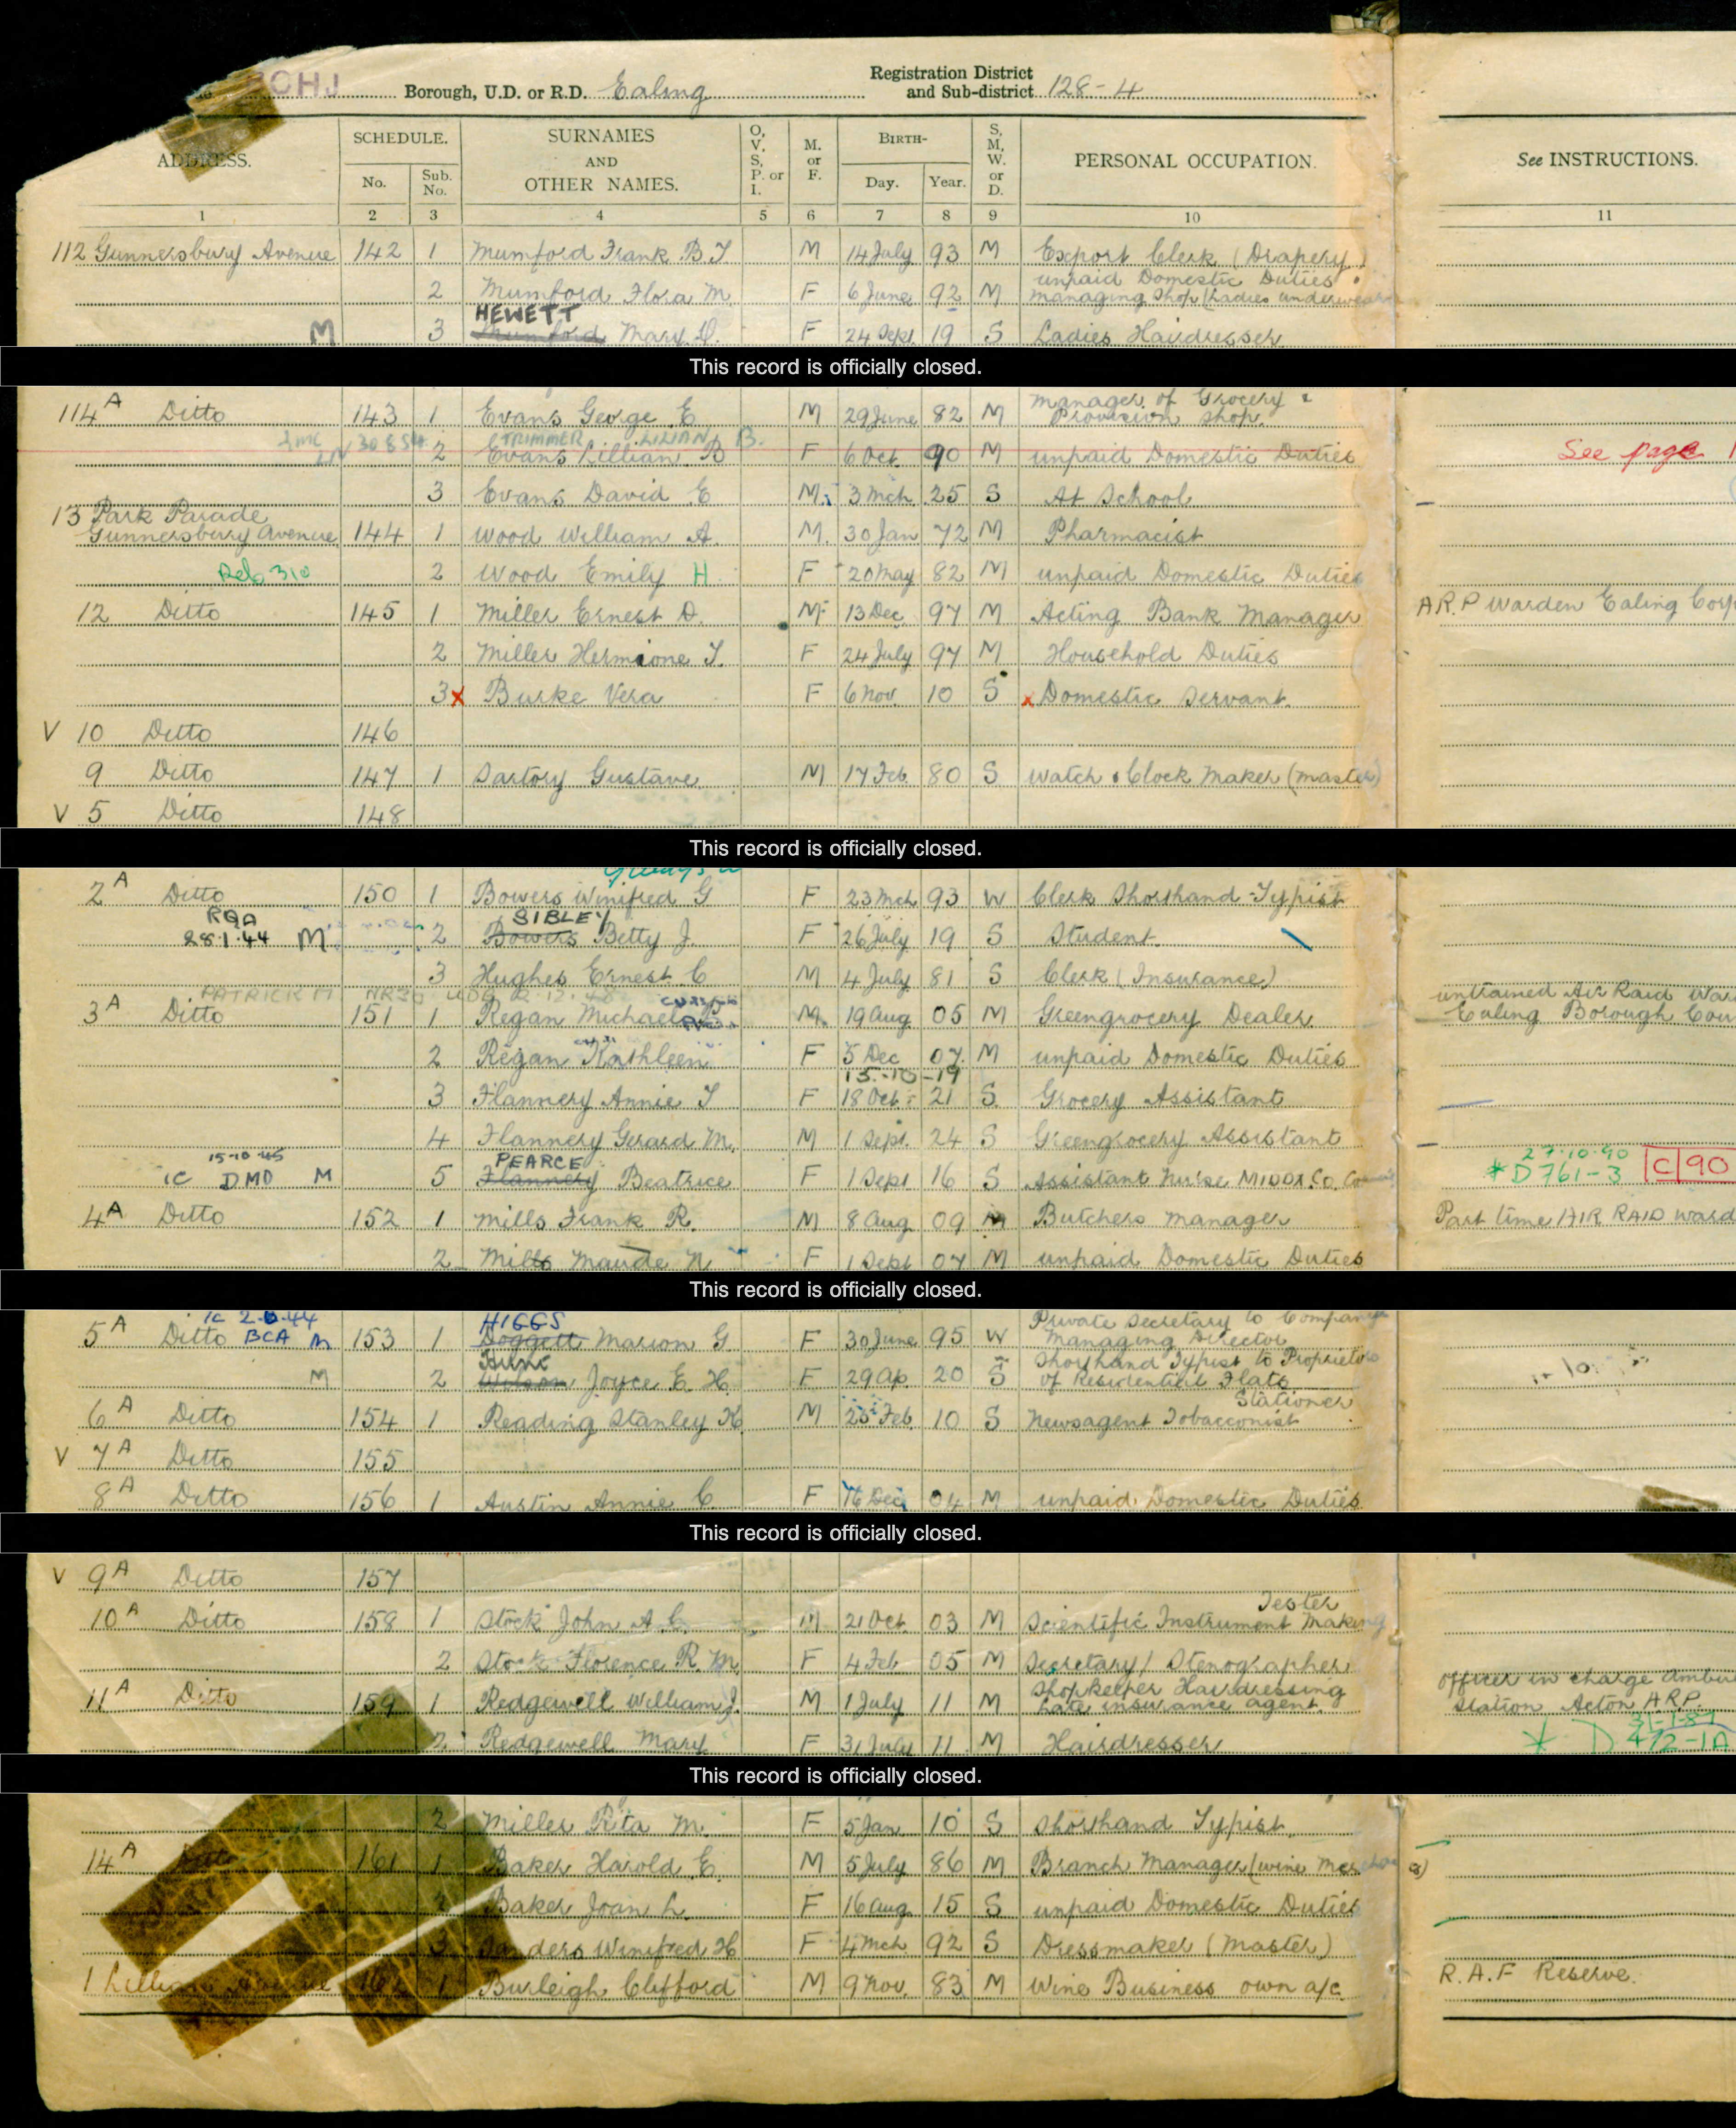 COHJ Borough, U.D. or R.D. Ealing Registration District and Sub-district 128-4
ADDRESS. SCHEDULE. No. Sub. No. SURNAMES AND OTHER NAMES. O, V, S, P. or I. M. or F. BIRTH- Day. Year. S, M, W. or D. PERSONAL OCCUPATION. See INSTRUCTIONS.
1 2 3 4 5 6 7 8 9 10 11
112 Gunnersbury Avenue 142 1 Mumford Frank B T M 14 July 93 M Export Clerk (Drapery)
unpaid Domestic Duties
2 Mumford Flora M F 6 June 92 M managing Shop (Ladies underwear
HEWETT
M 3 Mumford Mary D. F 24 Sept 19 S Ladies Hairdresser
This record is officially closed.
114 A Ditto 143 1 Evans George E M 29 June 82 M manager of Grocery &
Provision shop.
TRIMMER LILIAN B.
2 Evans Lillian B F 6 Oct 90 M unpaid Domestic Duties See page
3 Evans David E M 3 Mch 25 S At School
13 Park Parade
Gunnersbury Avenue 144 1 Wood William A. M. 30 Jan 72 M Pharmacist
Reb 310 2 Wood Emily H F 20 May 82 M unpaid Domestic Duties
12 Ditto 145 1 Miller Ernest D. M 13 Dec 97 M Acting Bank Manager A.R.P Warden Ealing Corp
2 Miller Hermione T. F 24 July 97 M Household Duties
3 x Burke Vera F 6 Nov. 10 S x Domestic Servant.
V 10 Ditto 146
9 Ditto 147 1 Sartory Gustave M 17 Feb. 80 S Watch & Clock Maker (master)
V 5 Ditto 148
This record is officially closed.
2 A Ditto 150 1 Bowers Winifred G F 23 Mch 93 W Clerk Shorthand-Typist
SIBLEY
28.1.44 M 2 Bowers Betty J F 26 July 19 S Student
3 Hughes Ernest C M 4 July 81 S Clerk (Insurance)
PATRICK M untrained Air Raid War
3 A Ditto 151 1 Regan Michael M. 19 Aug 05 M Greengrocery Dealer Ealing Borough Cou
2 Regan Kathleen F 5 Dec 07. M unpaid Domestic Duties
15-10-19
3 Flannery Annie T F 18 Oct 21 S. Grocery Assistant
4 Flannery Gerard M. M 1 Sept. 24 S Greengrocery Assistant
15-10-45 PEARCE 27.10.90
IC DMD M 5 Flannery Beatrice F 1 Sept 16 S Assistant Nurse MIDDX. Co. *D761-3 C 90
4 A Ditto 152 1 Mills Frank R. M 8 Aug 09 M Butchers manager Part time AIR RAID ward
2 Mills Maude N F 1 Sept 07 M unpaid Domestic Duties
This record is officially closed.
IC 2.6.44 HIGGS Private Secretary to Company
5 A Ditto BCA M 153 1 Doggett Marion G F 30 June 95 W Managing Director
Hunt Shorthand Typist to Proprietor
M 2 Wilson Joyce E. H. F 29 Ap. 20 S of Residential Flats
Stationer
6 A Ditto 154 1 Reading Stanley H M 25 Feb 10 S Newsagent Tobacconist
V 7 A Ditto 155
8 A Ditto 156 1 Austin Annie C. F 16 Dec 04 M unpaid Domestic Duties
This record is officially closed.
V 9 A Ditto 157
Tester
10 A Ditto 158 1 Stock John A. C. M 21 Oct. 03 M Scientific Instrument Making
2 Stock Florence R. M. F 4 Feb 05 M Secretary / Stenographer
Shopkeeper Hairdressing Officer in charge Ambu
11 A Ditto 159 1 Redgewell William J. M 1 July 11 M Late insurance agent. Station Acton A.R.P.
31-1-84
2 Redgewell Mary F 31 July 11 M Hairdresser * D 472-1A
This record is officially closed.
2 Miller Rita M. F 5 Jan 10 S Shorthand Typist.
14 A Ditto 161 1 Baker Harold E. M 5 July 86 M Branch Manager (wine
2 Baker Joan L. F 16 Aug. 15 S unpaid Domestic Duties
3 Sanders Winifred H F 4 Mch 92 S Dressmaker (Master)
1 Lillian Avenue 162 1 Burleigh Clifford M 9 Nov. 83 M Wine Business own a/c. R.A.F Reserve.